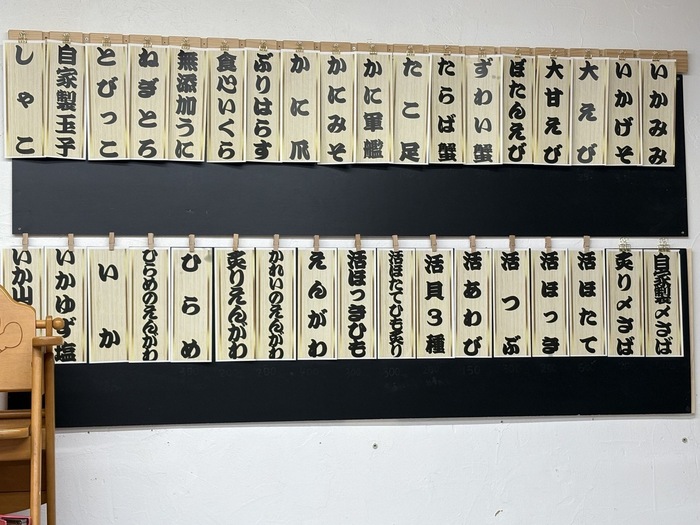 いかみみ
いかげそ
大えび
大甘えび
ぼたんえび
ずわい蟹
たらば蟹
たこ足
かに軍艦
かにみそ
かに爪
ぶりはらす
食心いくら
無添加うに
ねぎとろ
とびっこ
自家製玉子
しゃこ
自家製〆さば
炙り〆さば
活ほたて
活ほっき
活つぶ
活あわび
活貝3種
活ほたてひも炙り
活ほっきひも
えんがわ
かれいのえんがわ
炙りえんがわ
ひらめ
ひらめのえんがわ
いか
いかゆず塩